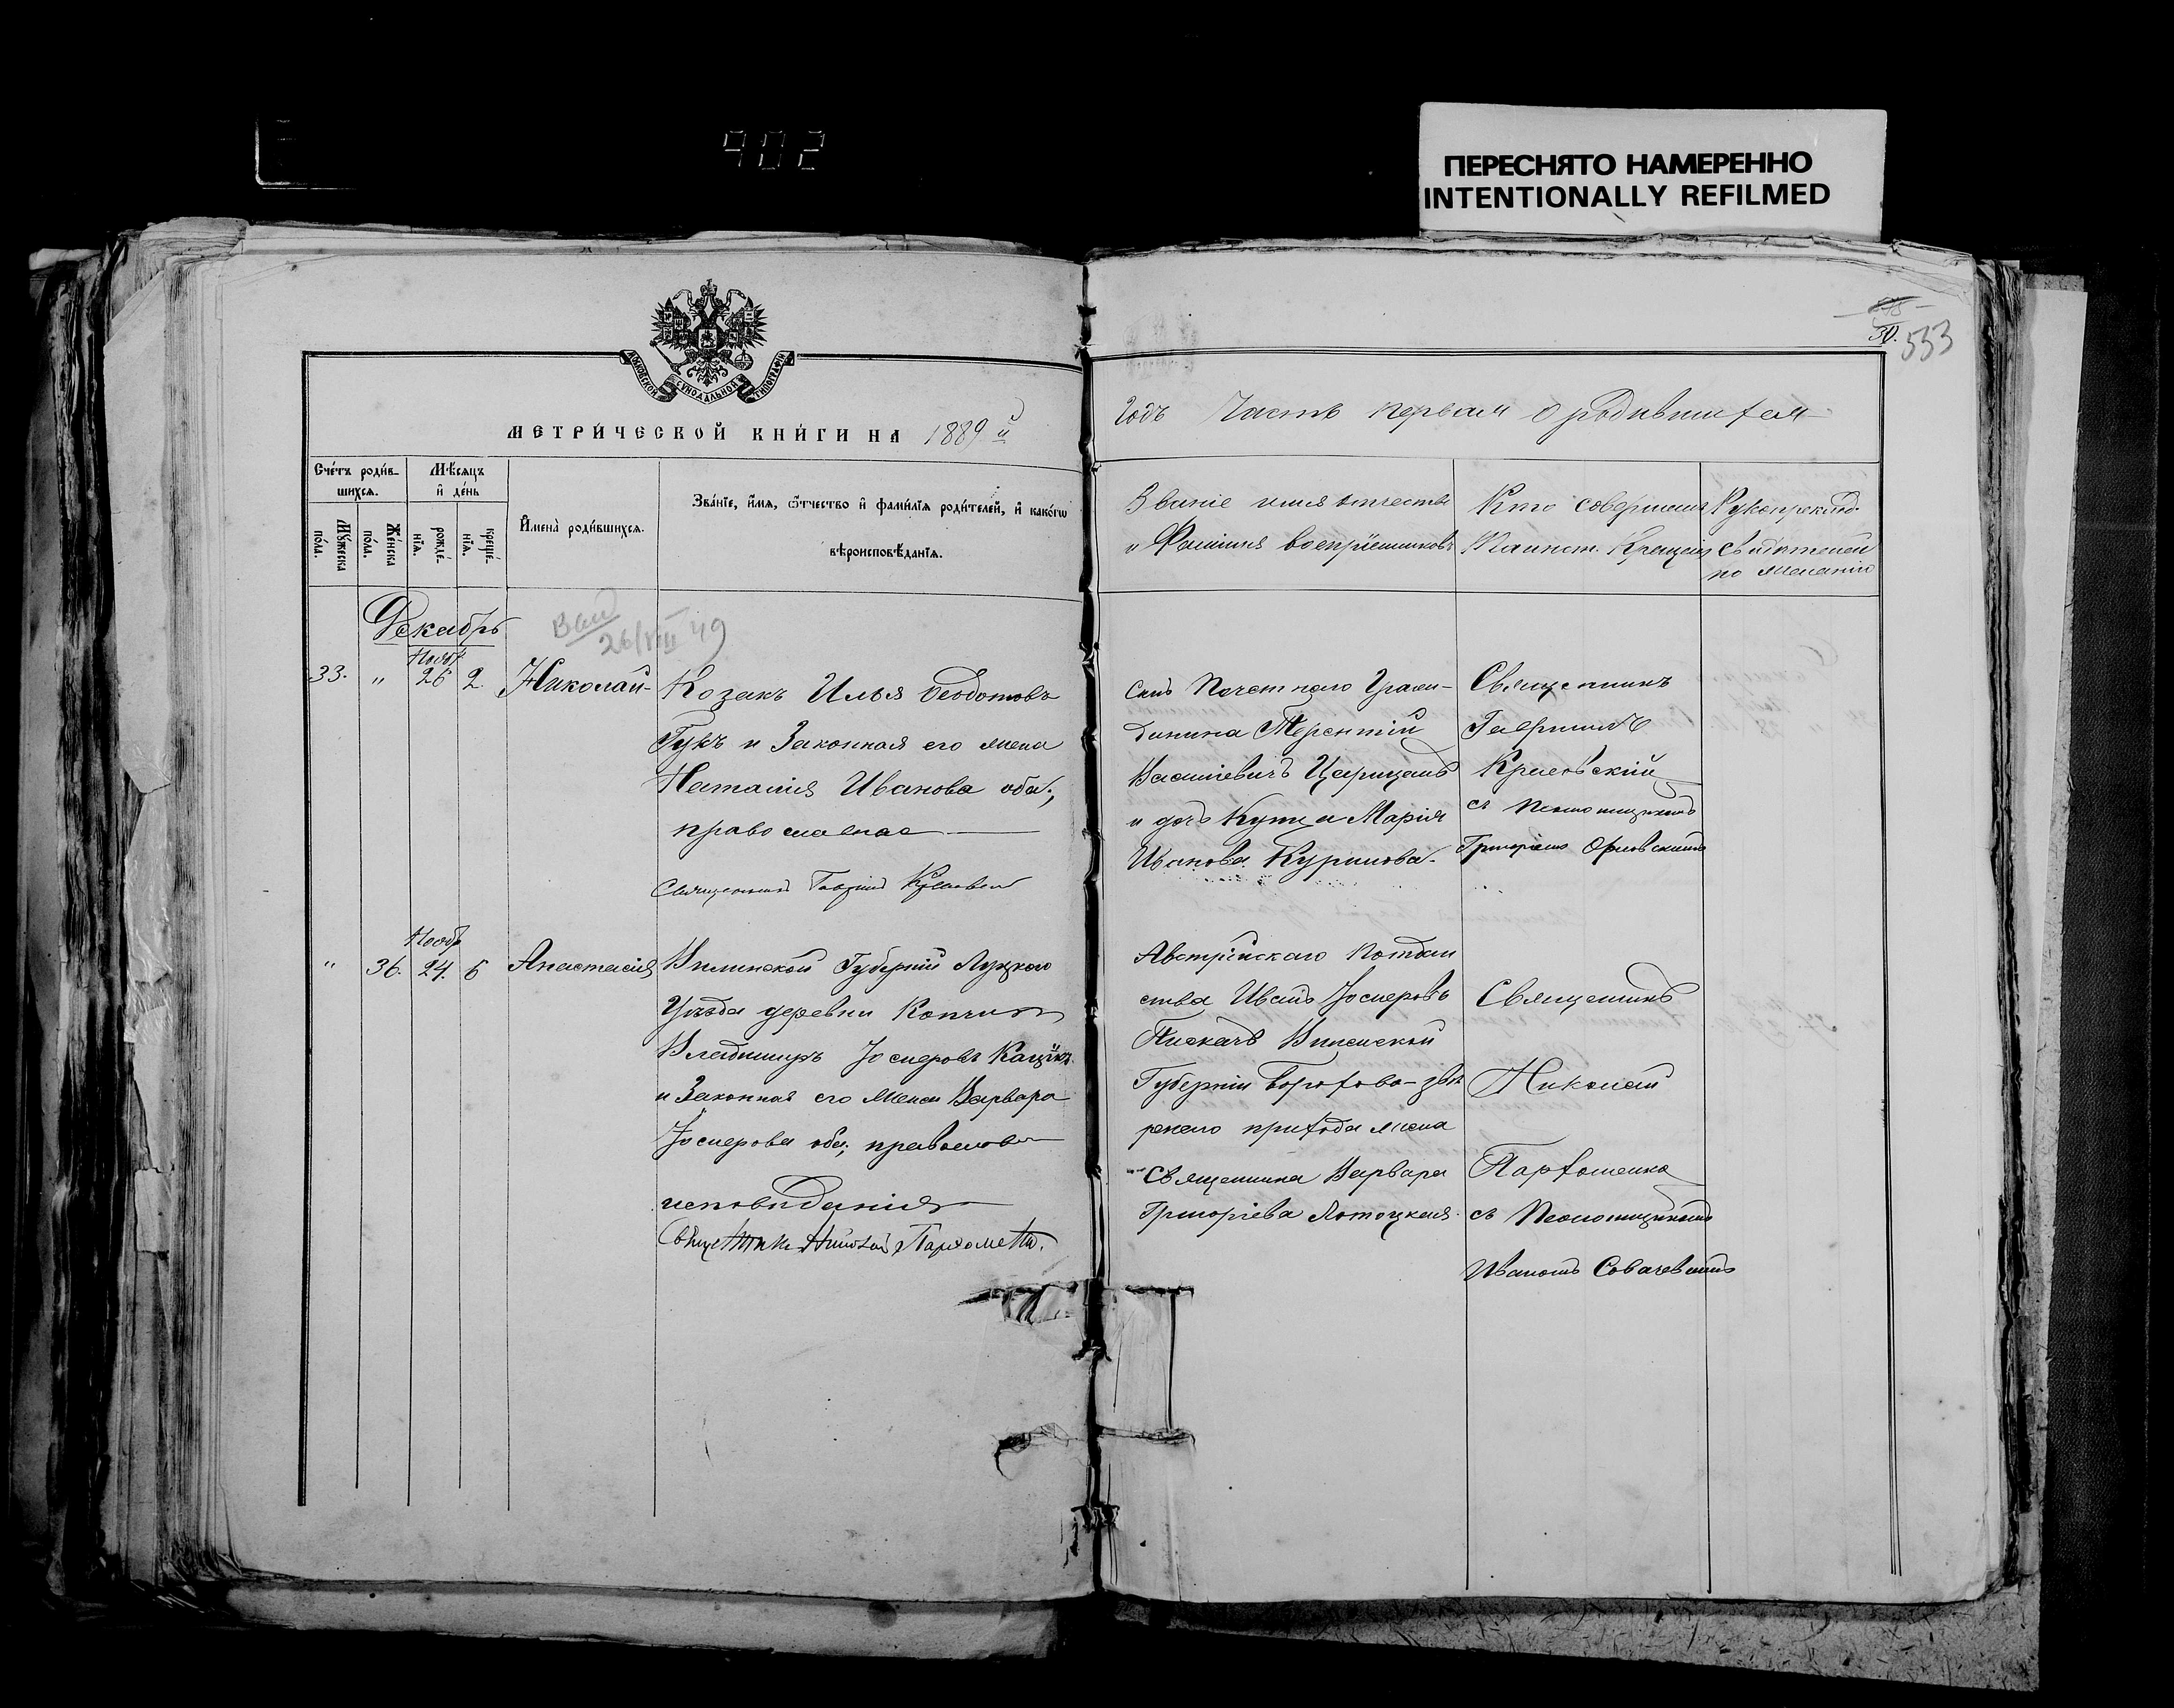 902
ПЕРЕСНЯТО НАМЕРЕННО
INTENTIONALLY REFILMED
30.
533
МОСКОВСКОЙ СѴНОДАЛЬНОЙ ТИПОГРАФІИ
МЕТРИ́ЧЕСКОЙ КНИ́ГИ НА 1889 й
Годъ Часть первая о родившихся
Сче́тъ роди́в-
шихсѧ.
Мѣ́сѧцъ
и҆ де́нь
Мꙋ́жеска
по́ла.
Же́нска
по́ла.
рожде́-
нїѧ.
креще́-
нїѧ.
И҆мена̀ роди́вшихсѧ.
Зва́нїе, и҆́мѧ, ѻ҆́тчество и҆ фами́лїѧ роди́телей, и҆ како́гѡ
вѣроисповѣ́данїѧ.
Званіе имя отчество
и Фамилія воспріемниковъ
Кто совершалъ
Таинст. Крещенія
Рукоприклад.
свидѣтелей
по желанію
Декабрь
26/VIII 49
33. " Нояб. 26 2 Николай
Козакъ Илья Ѳеодотовъ
Гукъ и Законная его жена
Наталія Иванова оба;
православнае
Священникъ Гавріилъ Краевский
Сынъ Почетнаго Граж-
данина Терентій
Василіевичъ Царицанъ
и дочь Купца Марія
Иванова Курилова.
Священникъ
Гавріилъ
Краевскій
съ Псаломщикомъ
Григоріемъ Орловскимъ
" 36. Нояб. 24. 6 Анастасія
Волинской Губерніи Луцкого
Уѣзда деревни
Владиміръ Іосифовъ
и Законная его Жена Варвара
Іосифова оба; православн
исповѣданія
Священникъ Николай Пархоменко.
Австрійскаго Поддан
ства Иванъ Іосифовъ
Пискачъ Волинской
Губерніи
рскаго прихода жена
Священника Варвара
Григоріева Лотоцкая.
Священникъ
Николай
Пархоменко
съ Псаломщикомъ
Иваномъ